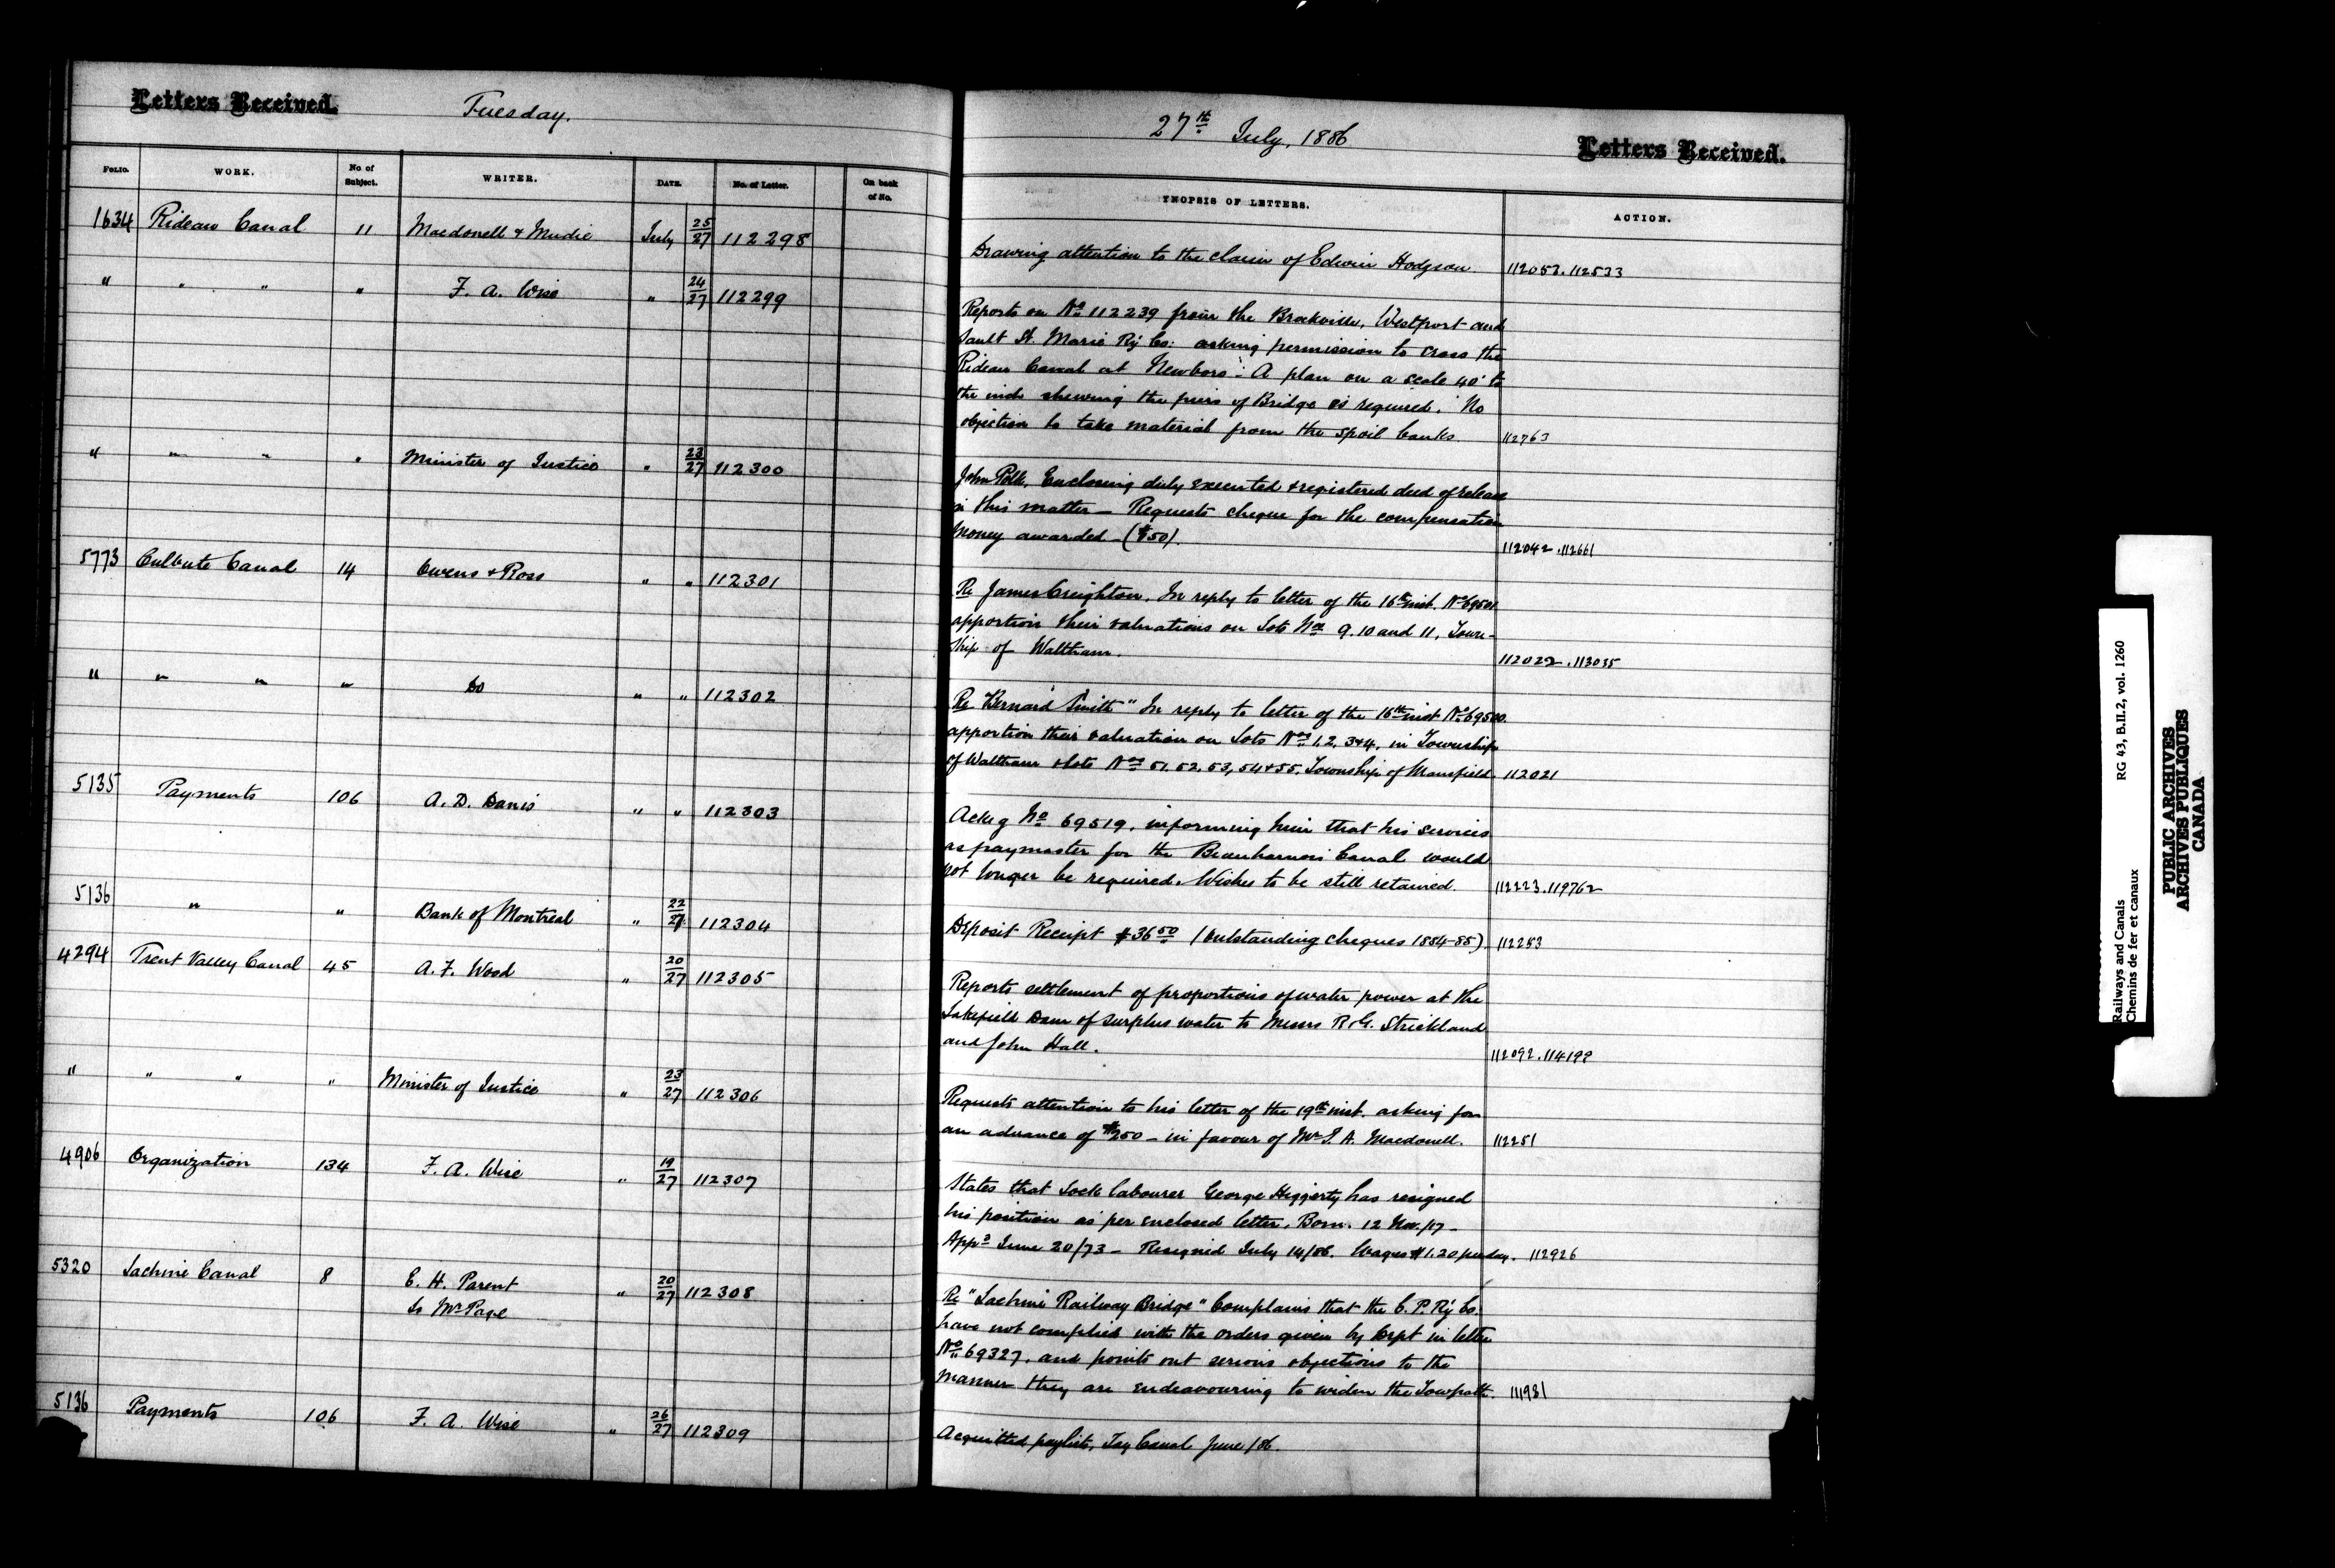 Letters Received.
Tuesday.
27th July, 1886
Letters Received.
FOLIO. WORK. No of Subject. WRITER. DATE. No. of Letter. On back of No.
YNOPSIS OF LETTERS. ACTION.
1634 Rideau Canal 11 Macdonell & Mudie July 25/27 112298
Drawing attention to the claim of Edwin Hodgson 112053.112533
" " " " F. A. Wise " 24/27 112299
Reports on No 112239 from the Brockville, Westport and
Sault St. Marie Ry Co: asking permission to cross the
Rideau Canal at Newboro'. A plan on a scale 40' to
the inch shewing the piers of Bridge is required. No
objection to take material from the spoil banks. 112763
" " " " Minister of Justice " 23/27 112300
John Polk. Enclosing duly executed & registered deed of release
in this matter — Requests cheque for the compensation
money awarded — ($50). 112042.112661
5773 Culbute Canal 14 Owens & Ross " " 112301
Re James Creighton. In reply to letter of the 16th inst. No 69501
apportion their valuations on Lots Nos 9. 10 and 11, Town-
ship of Waltham. 112022.113035
" " " " Do " " 112302
Re "Bernard Smith" In reply to letter of the 16th inst No 69500.
apportion their valuation on Lots Nos 1, 2, 3 & 4, in Township
of Waltham & lots Nos 51. 52. 53, 54 & 55. Township of Mansfield. 112021
5135 Payments 106 A. D. Danis " " 112303
Ackg No 69519, informing him that his services
as paymaster for the Beauharnois Canal would
not longer be required. Wishes to be still retained. 112223.119762
5136 " " Bank of Montreal " 22/27 112304
Deposit Receipt $36 50 (Outstanding cheques 1884-85). 112253
4294 Trent Valley Canal 45 A. F. Wood " 20/27 112305
Reports settlement of proportions of water power at the
Lakefield Dam of surplus water to Messrs R. G. Strickland
and John Hall. 112092.114199
" " " " Minister of Justice " 23/27 112306
Requests attention to his letter of the 19th inst. asking for
an advance of $250 — in favour of Mr. J. A. Macdonell. 112251
4906 Organization 134 F. A. Wise " 19/27 112307
States that Lock labourer George Heggerty has resigned
his position as per enclosed letter. Born. 12 Nov./17 —
Appd June 20/73 — Resigned July 14/86. Wages $1.20 per day. 112926
5320 Lachine Canal 8 E. H. Parent " 20/27 112308
to Mr Page
Re "Lachine Railway Bridge" Complains that the C. P. Ry Co.
have not complied with the orders given by Dept in letter
No 69327, and points out serious objections to the
manner they are endeavouring to widen the Towpath. 111981
5136 Payments 106 F. A. Wise " 26/27 112309
Acquitted paylists, Tay Canal June/86.
RG 43, B.II.2, vol. 1260
Railways and Canals
Chemins de fer et canaux
PUBLIC ARCHIVES
ARCHIVES PUBLIQUES
CANADA